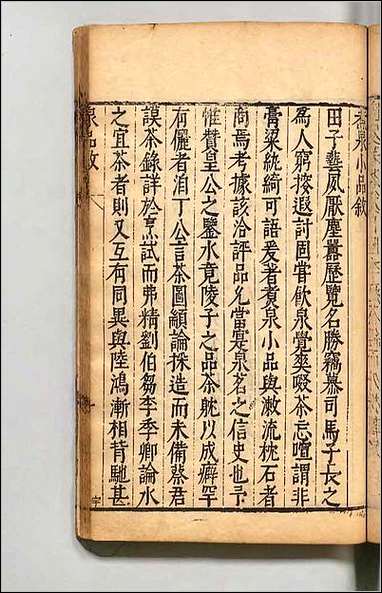 煮泉小品敘
田子藝夙厭塵囂歷覽名勝竊慕司馬子長之
為人窮搜遐討固嘗飲泉覺爽啜茶忘喧謂非
膏粱紈綺可語爰著煮泉小品與漱流枕石者
商焉考據該洽評品允當寔泉茗之信史也予
惟贊皇公之鑒水竟陵子之品茶躭以成癖罕
有儷者洎丁公言茶圖顓論採造而未備蔡君
謨茶錄詳於烹試而弗精劉伯芻李季卿論水
之宜茶者則又互有同異與陸鴻漸相背馳甚
泉品敘